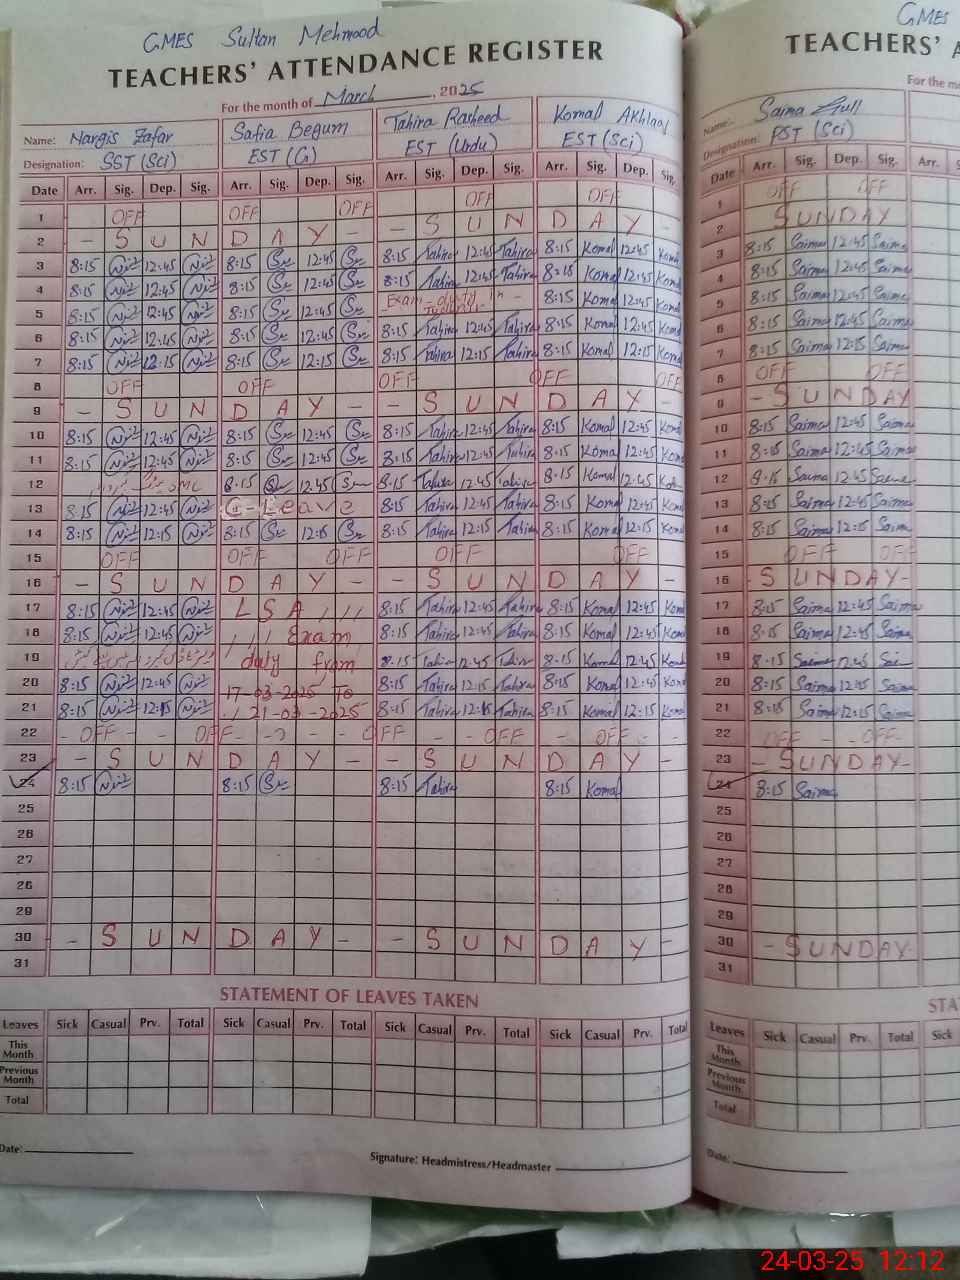 GMES Sultan Mehmood
TEACHERS' ATTENDANCE REGISTER
For the month of March, 2025
Name: Nargis Zafar Safia Begum Tahira Rasheed Komal Akhlaaq
Designation: SST (Sci) EST (G) EST (Urdu) EST (Sci)
Date Arr. Sig. Dep. Sig. Arr. Sig. Dep. Sig. Arr. Sig. Dep. Sig. Arr. Sig. Dep. Sig.
1 OFF OFF OFF OFF OFF
2 - S U N D A Y - - S U N D A Y -
3 8:15 12:45 8:15 12:45 8:15 Tahira 12:45 Tahira 8:15 Komal 12:45 Komal
4 8:15 12:45 8:15 12:45 8:15 Tahira 12:45 Tahira 8:15 Komal 12:45 Komal
5 8:15 12:45 8:15 12:45 Exam - duty in - 8:15 Komal 12:45 Komal
6 8:15 12:45 8:15 12:45 8:15 Tahira 12:45 Tahira 8:15 Komal 12:45 Komal
7 8:15 12:15 8:15 12:15 8:15 Tahira 12:15 Tahira 8:15 Komal 12:15 Komal
8 OFF OFF OFF OFF OFF
9 - S U N D A Y - - S U N D A Y -
10 8:15 12:45 8:15 12:45 8:15 Tahira 12:45 Tahira 8:15 Komal 12:45 Komal
11 8:15 12:45 8:15 12:45 8:15 Tahira 12:45 Tahira 8:15 Komal 12:45 Komal
12 SMC 8:15 12:45 8:15 Tahira 12:45 Tahira 8:15 Komal 12:45 Komal
13 8:15 12:45 C-Leave 8:15 Tahira 12:45 Tahira 8:15 Komal 12:45 Komal
14 8:15 12:45 8:15 12:15 8:15 Tahira 12:15 Tahira 8:15 Komal 12:15 Komal
15 OFF OFF OFF OFF OFF
16 - S U N D A Y - - S U N D A Y -
17 8:15 12:45 LSA 8:15 Tahira 12:45 Tahira 8:15 Komal 12:45 Komal
18 8:15 12:45 Exam 8:15 Tahira 12:45 Tahira 8:15 Komal 12:45 Komal
19 duty from 8:15 Tahira 12:45 Tahira 8:15 Komal 12:45 Komal
20 8:15 12:45 17-03-2025 To 8:15 Tahira 12:15 Tahira 8:15 Komal 12:45 Komal
21 8:15 12:15 21-03-2025 8:15 Tahira 12:15 Tahira 8:15 Komal 12:15 Komal
22 - OFF - OFF - - OFF - OFF - OFF -
23 - S U N D A Y - - S U N D A Y -
24 8:15 8:15 8:15 Tahira 8:15 Komal
25
26
27
28
29
30 - S U N D A Y - - S U N D A Y -
31
STATEMENT OF LEAVES TAKEN
Leaves Sick Casual Prv. Total Sick Casual Prv. Total Sick Casual Prv. Total Sick Casual Prv. Total
This Month
Previous Month
Total
Date:
Signature: Headmistress/Headmaster
GMES
TEACHERS' A
For the m
Name: Saima Gull
Designation: PST (Sci)
Date Arr. Sig. Dep. Sig. Arr. S
1 OFF OFF
2 SUNDAY
3 8:15 Saima 12:45 Saima
4 8:15 Saima 12:45 Saima
5 8:15 Saima 12:45 Saima
6 8:15 Saima 12:45 Saima
7 8:15 Saima 12:15 Saima
8 OFF OFF
9 - SUNDAY
10 8:15 Saima 12:45 Saima
11 8:15 Saima 12:45 Saima
12 8:15 Saima 12:45 Saima
13 8:15 Saima 12:45 Saima
14 8:15 Saima 12:15 Saima
15 OFF OFF
16 - SUNDAY -
17 8:15 Saima 12:45 Saima
18 8:15 Saima 12:45 Saima
19 8:15 Saima 12:45
20 8:15 Saima 12:45 Saima
21 8:15 Saima 12:15 Saima
22 OFF - OFF -
23 - SUNDAY -
24 8:15 Saima
25
26
27
28
29
30 - SUNDAY -
31
STA
Leaves Sick Casual Prv. Total Sick
This Month
Previous Month
Total
Date:
24-03-25 12:12